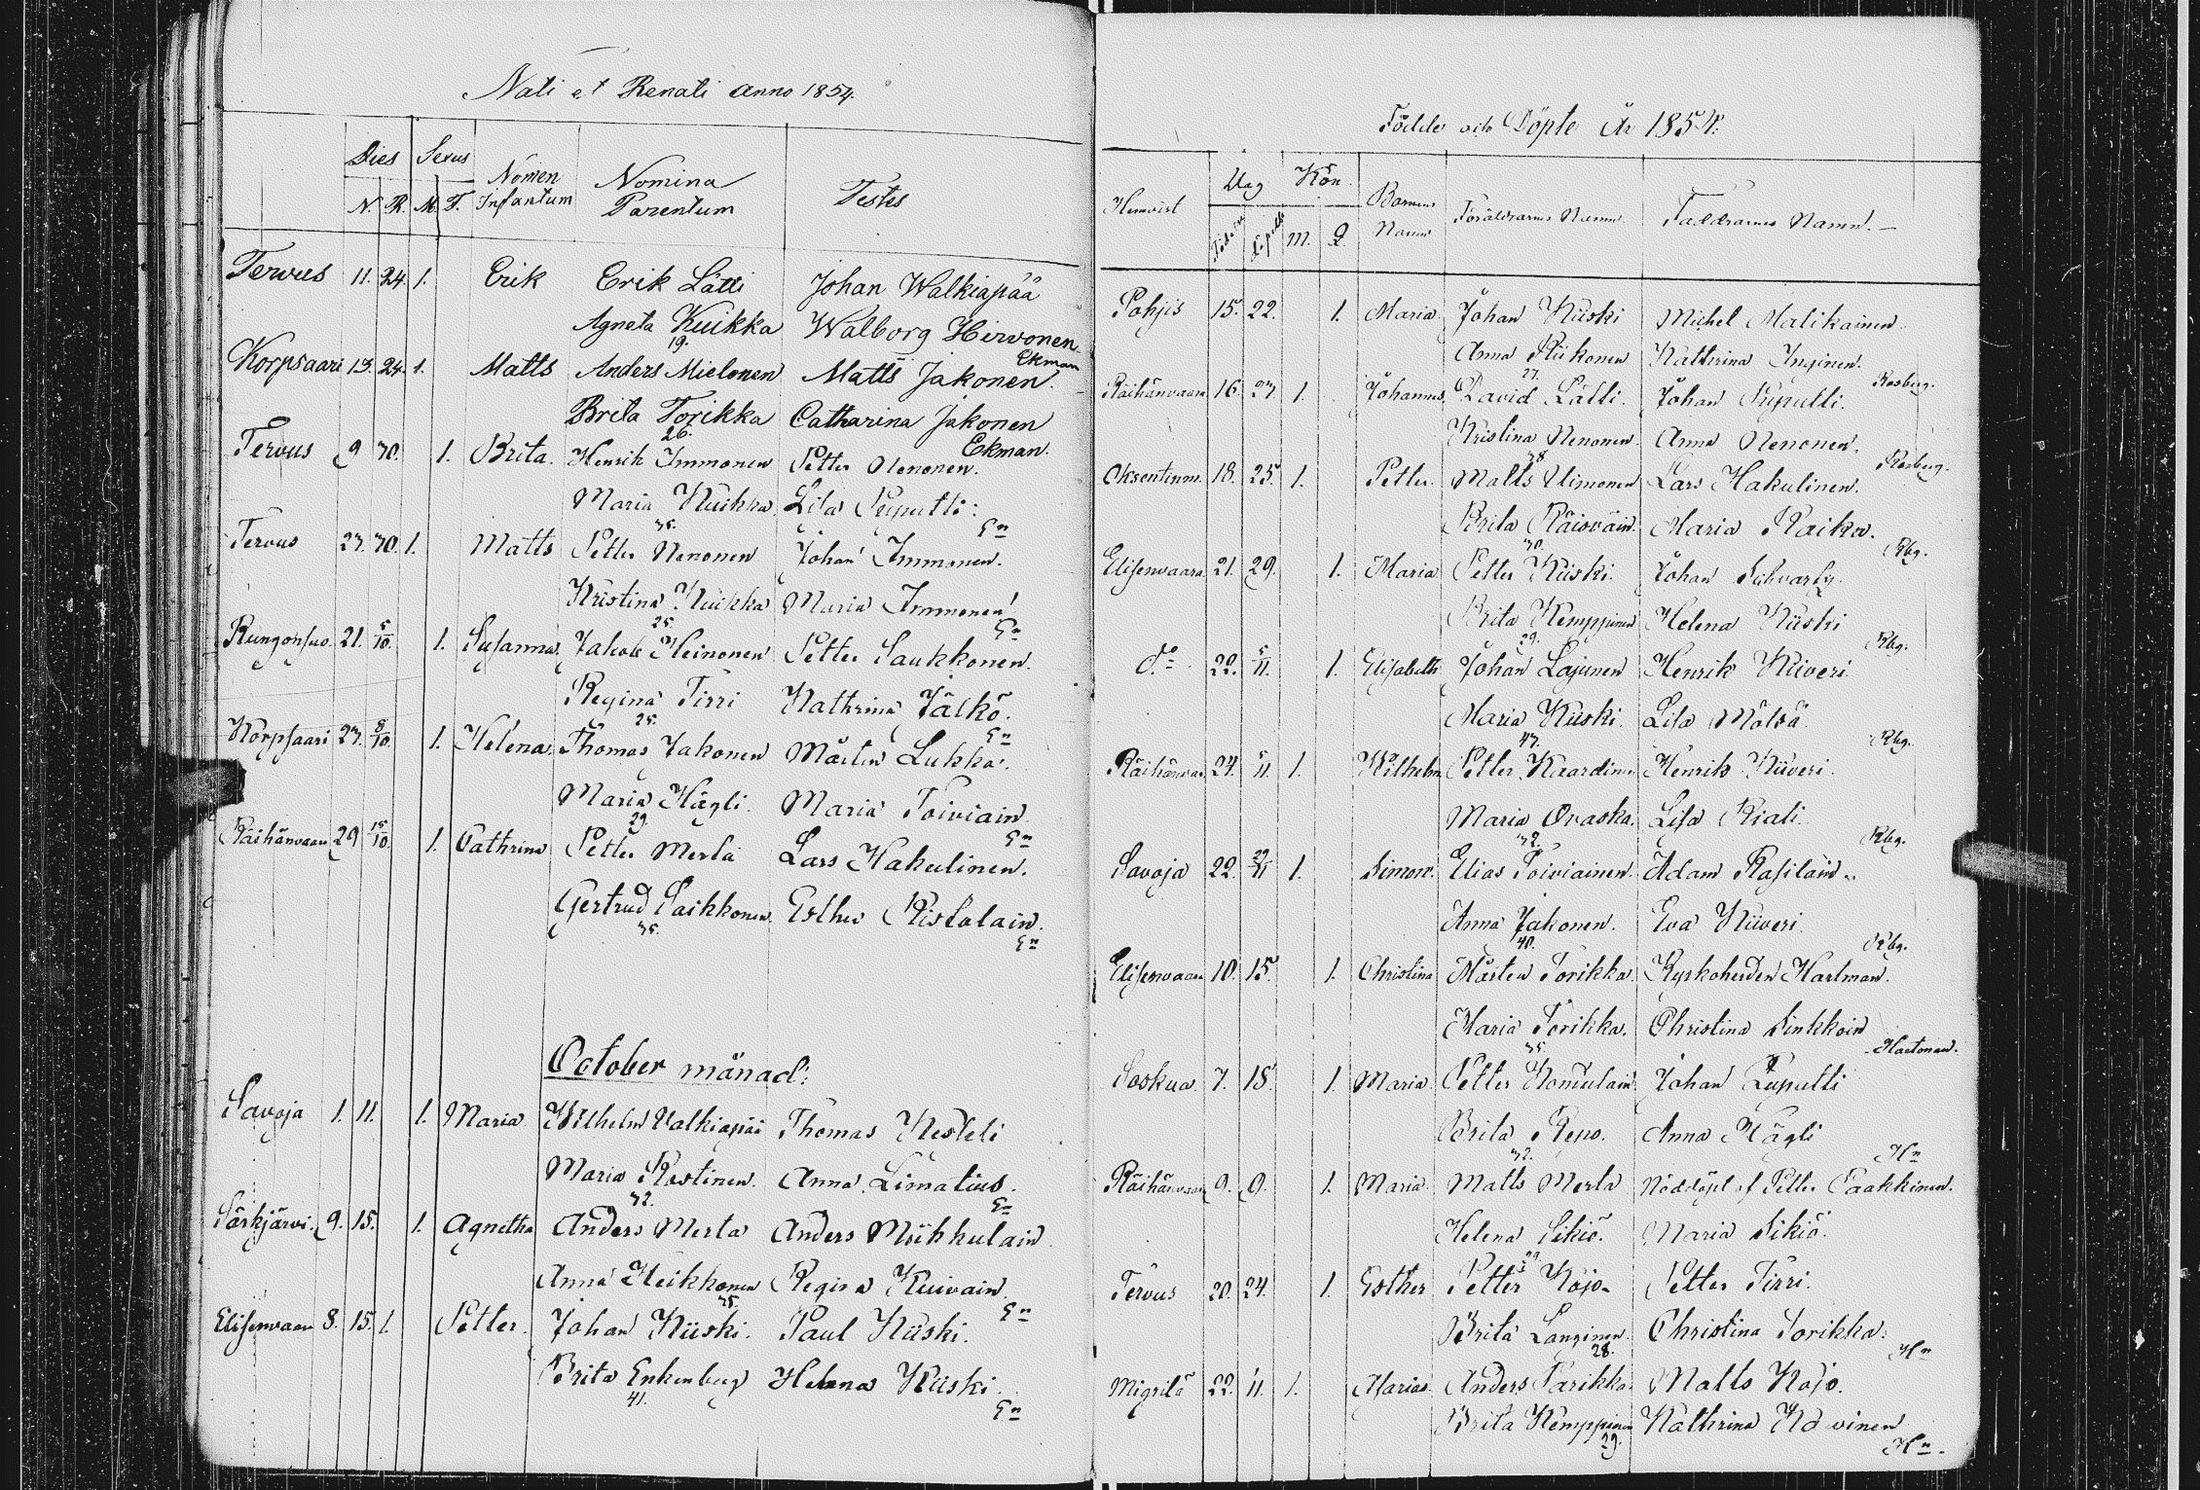 Nati et Renati anno 1854.
Dies Sexus Nomen Infantum Nomina Parentum Testes
N. R. M. F.
Tervus 11. 24. 1. Erik Erik Lätti Johan Walkiapää
Agneta Kuikka Walborg Hirvonen
19. Ekman
Korpsaari 13. 24. 1. Matts Anders Mielonen Matts Jakonen.
Brita Torikka Catharina Jakonen
26. Ekman.
Tervus 9 30. 1. Brita. Henrik Immonen Petter Nenonen.
Maria Kuikka Lisa Piiputti:
35. En
Tervus 23. 30. 1. Matts Petter Nenonen Johan Immonen.
Kristina Kuikka Maria Immonen
25. En
Rungonsuo. 21. 5/10. 1. Susanna Jakob Heinonen Petter Saukkonen.
Regina Tirri Kathrina Jälkö.
25. En
Korpsaari 23. 8/10. 1. Helena Thomas Jakonen Mårten Lukka.
Maria Hägli. Maria Toiviain
29. En
Räihänvaara 29 15/10. 1. Cathrina Petter Merla Lars Hakulinen.
Gertrud Paikkonen. Esther Ristolain.
35. En
October månad:
Savoja 1. 11. 1. Maria Wilhelm Valkiapää Thomas Nesteli
Maria Rostinen. Anna Limatius.
32. En
Särkjärvi. 9. 15. 1. Agnetha Anders Merta Anders Miikkulain
Anna Heikkonen Regina Kuivain.
35. En
Elisenvaara 8. 15. 1. Petter. Johan Kiiski. Paul Kiiski.
Brita Enkenberg Helena Kiiski.
41. En
Födde och Döpte År 1854.
Hemvist Dag Kön. Barnens Namn Föräldrarnes Namn Faddrarnes Namn.
Födelse Döpelse M. Q.
Pohjis 15. 22. 1. Maria Johan Kiiski Michel Malikainen.
Anna Kiikonen Kathrina Inginen.
27. Rosberg.
Räihänvaara 16. 23. 1. Johannes. David Lätti. Johan Piiputti.
Kristina Nenonen. Anna Nenonen.
38 Rosberg.
Oksentinm. 18. 25. 1. Petter. Matts Ulimonen Lars Hakulinen.
Brita Räisväin. Maria Raika.
30. Rbg.
Elisenvaara 21. 29. 1. Maria Petter Kiiski. Johan Schvartz.
Brita Kemppinen Helena Kiiski
29. Rbg.
do. 22. 5/11. 1. Elisabeth Johan Lajunen Henrik Kiiveri
Maria Kiiski. Lisa Mölsä.
43. Rbg.
Räihänvaa 24. 5/11. 1. Wilhelm Petter Kaardinen Henrik Kiiveri.
Maria Ovaska. Lisa Riali.
32. Rbg.
Savoja 22. 1. Simon. Elias Toiviainen. Adam Rasilain.
Anna Jakonen. Eva Kiiveri.
40. Rbg.
Elisenvaara 10. 15. 1. Christina Mårten Torikka. Kyrkoherden Hartman.
Maria Torikka. Christina Sinkkoin
35. Hartman.
Soskua. 7. 18. 1. Maria. Petter Komulain Johan Piiputti
Brita Repo. Anna Hägli
32. Hn
Räihänvaara 9. 9. 1. Maria. Matts Merla Nöddöpt af Petter Paakkinen.
Helena Sikiö. Maria Sikiö.
29.
Tervus 20. 24. 1. Esther Petter Kojo. Petter Tirri.
Brita Langinen. Christina Torikka.
28. Hn
Migrilä 22. 11. 1. Asarias Anders Parikka Matts Kojo.
Brita Kemppinen Kathrina
29. Hn.